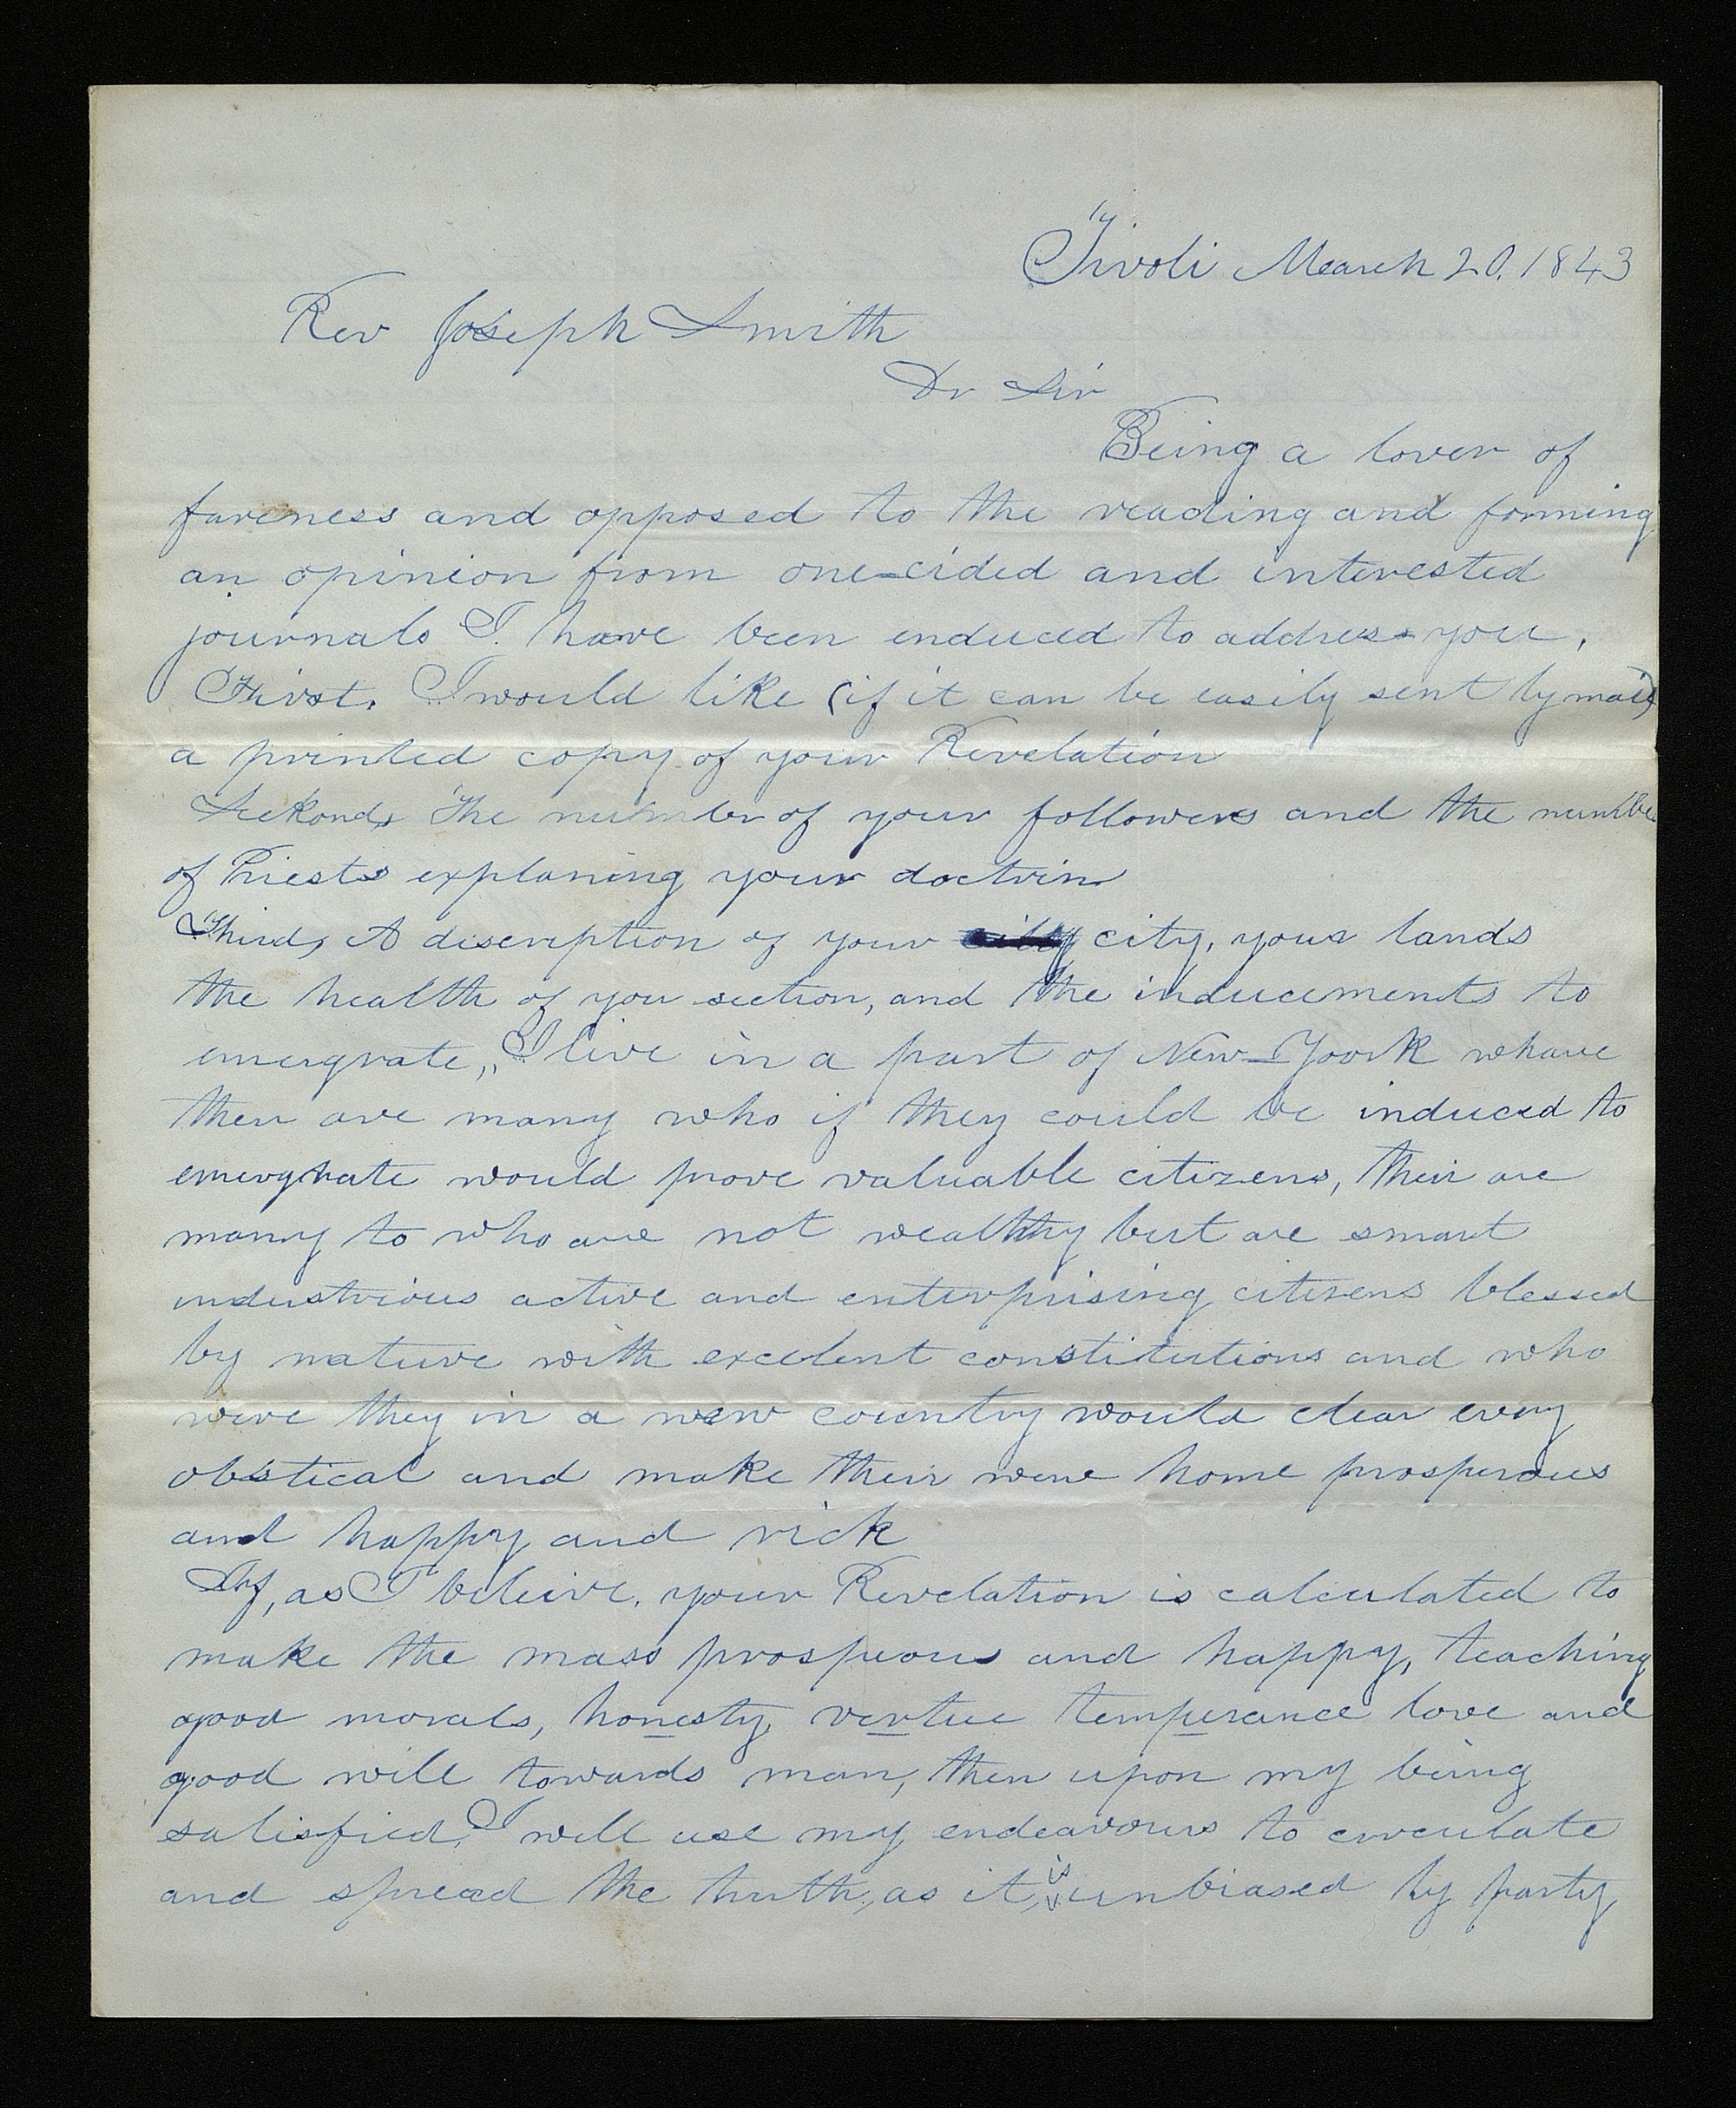 Tivoli March 20. 1843
Rev Joseph Smith
Dr Sir
Being a lover of
fareness and opposed to the reading and forming
an opinion from one-cided and interested
journals I. have been enduced to address you,
First. I would like (if it can be easily sent by mail)
a printed copy of your Revelation
Seckond, The number of your followers and the numbe
of Priests explaning your doctrin
Third, A discription of your city, your lands
the health of you section, and the inducements to
emergrate,, I live in a part of New-Yoork whare
ther are many who if they could be induced to
emergrate would prove valuable citizens, their are
many to who are not wealthy but are smart
industrious active and enterprising citizens blessed
by nature with excelent constitutions and who
were they in a new country would clear every
obstical and make their new home prosperous
and happy and rich
If, as I beleive, your Revelation is calculated to
make the mass prosperous and happy, teaching
good morals, honesty, vertue temperance love and
good will towards man, then upon my being
satisfied, I will use my endeavours to circulate
and spread the truth, as it is unbiased by party